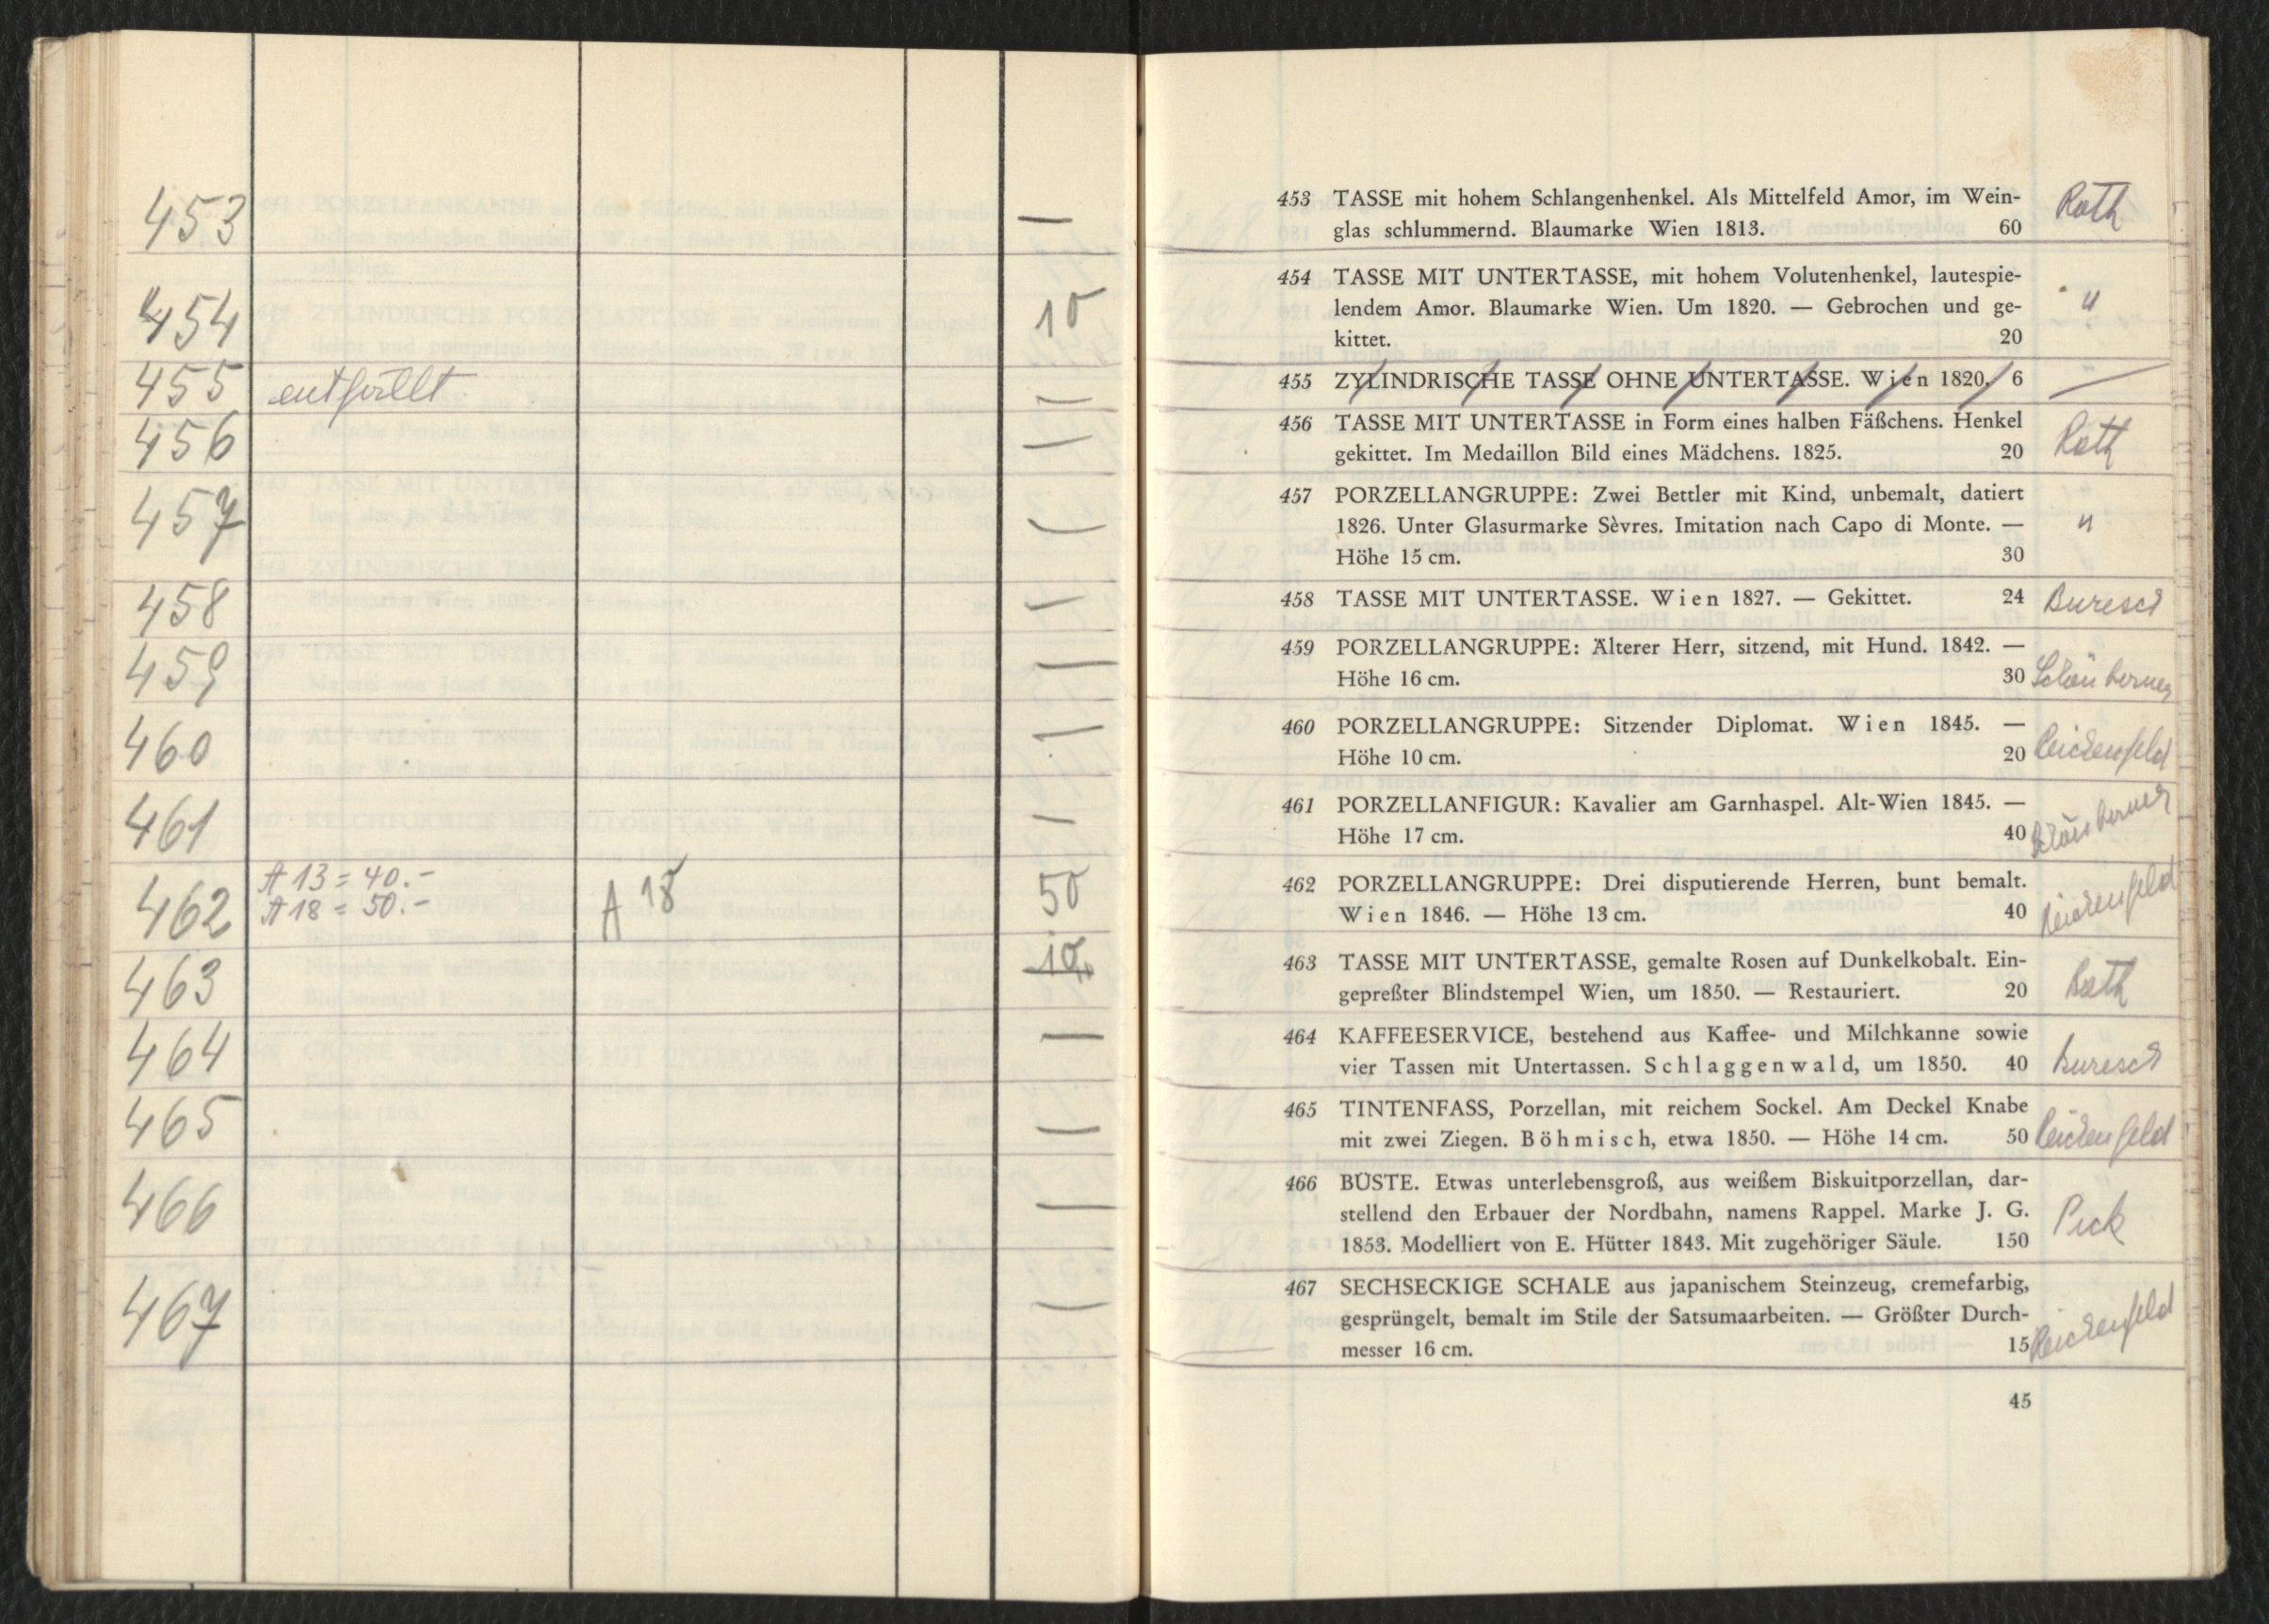 453
—
454
10
455 entfällt
—
456
—
457
—
458
—
459
—
460
—
461
—
A 13 = 40.-
462 A 18 = 50.- A 18 50
463
10
464
—
465
—
466
—
467
—
453 TASSE mit hohem Schlangenhenkel. Als Mittelfeld Amor, im Wein- Roth
glas schlummernd. Blaumarke Wien 1813. 60
454 TASSE MIT UNTERTASSE, mit hohem Volutenhenkel, lautespie-
lendem Amor. Blaumarke Wien. Um 1820. — Gebrochen und ge- "
kittet. 20
455 ZYLINDRISCHE TASSE OHNE UNTERTASSE. Wien 1820. 6 —
456 TASSE MIT UNTERTASSE in Form eines halben Fäßchens. Henkel Roth
gekittet. Im Medaillon Bild eines Mädchens. 1825. 20
457 PORZELLANGRUPPE: Zwei Bettler mit Kind, unbemalt, datiert
1826. Unter Glasurmarke Sèvres. Imitation nach Capo di Monte. — "
Höhe 15 cm. 30
458 TASSE MIT UNTERTASSE. Wien 1827. — Gekittet. 24 Buresch
459 PORZELLANGRUPPE: Älterer Herr, sitzend, mit Hund. 1842. —
Höhe 16 cm. 30
460 PORZELLANGRUPPE: Sitzender Diplomat. Wien 1845. —
Höhe 10 cm. 20 Reichenfeld
461 PORZELLANFIGUR: Kavalier am Garnhaspel. Alt-Wien 1845. —
Höhe 17 cm. 40
462 PORZELLANGRUPPE: Drei disputierende Herren, bunt bemalt.
Wien 1846. — Höhe 13 cm. 40 Reichenfeld
463 TASSE MIT UNTERTASSE, gemalte Rosen auf Dunkelkobalt. Ein- Roth
gepreßter Blindstempel Wien, um 1850. — Restauriert. 20
464 KAFFEESERVICE, bestehend aus Kaffee- und Milchkanne sowie
vier Tassen mit Untertassen. Schlaggenwald, um 1850. 40 Buresch
465 TINTENFASS, Porzellan, mit reichem Sockel. Am Deckel Knabe
mit zwei Ziegen. Böhmisch, etwa 1850. — Höhe 14 cm. 50 Reichenfeld
466 BÜSTE. Etwas unterlebensgroß, aus weißem Biskuitporzellan, dar-
stellend den Erbauer der Nordbahn, namens Rappel. Marke J. G. Pick
1853. Modelliert von E. Hütter 1843. Mit zugehöriger Säule. 150
467 SECHSECKIGE SCHALE aus japanischem Steinzeug, cremefarbig,
gesprüngelt, bemalt im Stile der Satsumaarbeiten. — Größter Durch-
messer 16 cm. 15 Reichenfeld
45